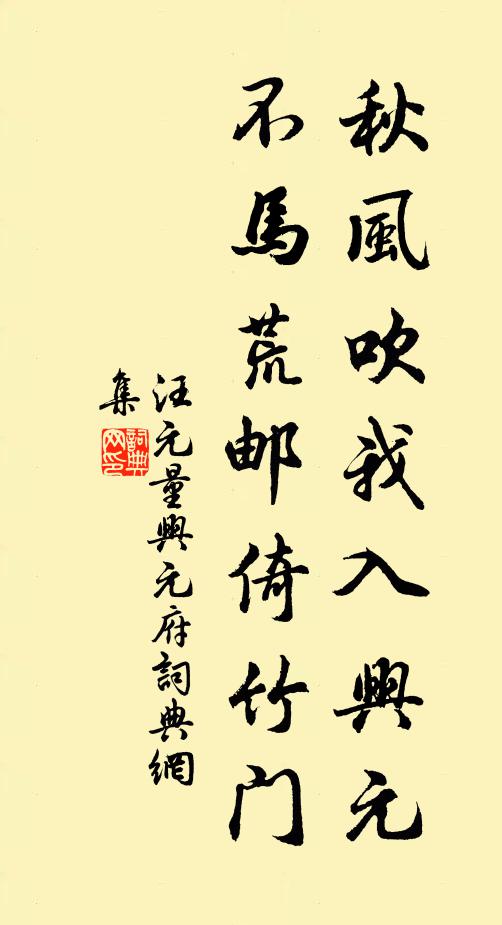 秋風吹我入興元
不馬荒邮倚竹门
汪元量興元府詞典網
集
詞典
网印